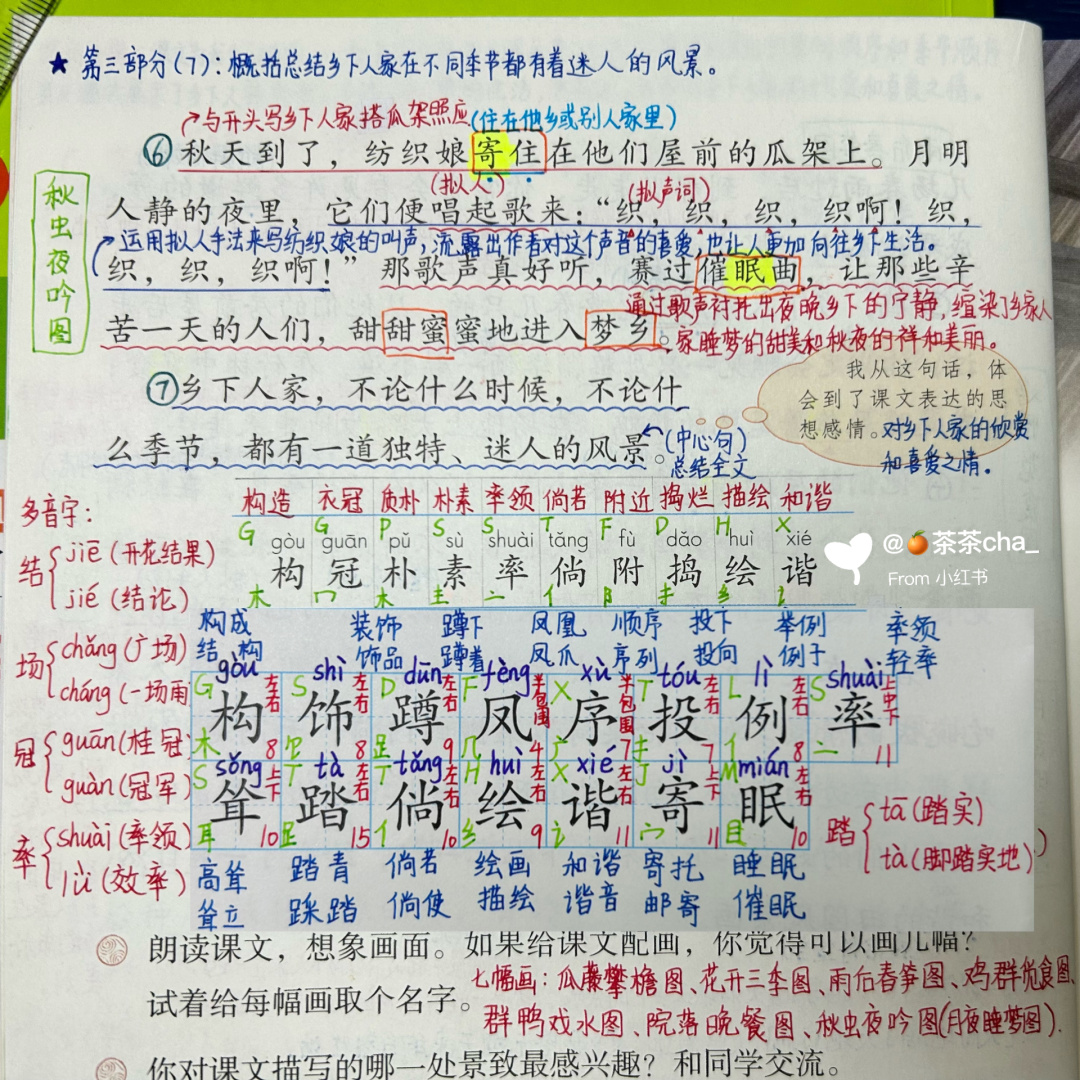 ★ 第三部分(7): 概括总结乡下人家在不同季节都有着迷人的风景。
与开头写乡下人家搭瓜架照应(住在他乡或别人家里)
⑥秋天到了，纺织娘寄住在他们屋前的瓜架上。月明
(拟人) (拟声词)
秋虫夜吟图
人静的夜里，它们便唱起歌来：“织，织，织，织啊！织，
运用拟人手法来写纺织娘的叫声，流露出作者对这个声音的喜爱，也让人更加向往乡下生活。
织，织，织啊！”那歌声真好听，赛过催眠曲，让那些辛
通过歌声衬托出夜晚乡下的宁静，渲染了乡家人
苦一天的人们，甜甜蜜蜜地进入梦乡。
家睡梦的甜美和秋夜的祥和美丽。
⑦乡下人家，不论什么时候，不论什
么季节，都有一道独特、迷人的风景。
(中心句)
总结全文
我从这句话，体
会到了课文表达的思
想感情。对乡下人家的欣赏
和喜爱之情。
构造 衣冠 质朴 朴素 率领 倘若 附近 捣烂 描绘 和谐
G G P S S T F D H X
gòu guān pǔ sù shuài tǎng fù dǎo huì xié
构 冠 朴 素 率 倘 附 捣 绘 谐
木 冖 木 亠 亻 阝 扌 纟 讠
@🍊茶茶cha_
From 小红书
多音字：
结 jiē (开花结果)
jié (结论)
场 chǎng (广场)
cháng (一场雨
冠 guān (桂冠)
guàn (冠军)
率 shuài (率领)
lǜ (效率)
构成 装饰 蹲下 凤凰 顺序 投下 举例 率领
结构 饰品 蹲着 凤爪 序列 投向 例子 轻率
gòu shì dūn fèng xù tóu lì shuài
G S D F X T L S
构 饰 蹲 凤 序 投 例 率
左右 左右 左右 半包围 半包围 左右 左右 上中下
木8 饣8 足9 几4 广7 扌7 亻8 亠11
sǒng tà tǎng huì xié jì mián
S T T H X J M
耸 踏 倘 绘 谐 寄 眠
上下 左右 左右 左右 左右 上下 左右
耳10 足15 亻10 纟9 讠11 宀11 目10
高耸 踏青 倘若 绘画 和谐 寄托 睡眠
耸立 踩踏 倘使 描绘 谐音 邮寄 催眠
踏 tā (踏实)
tà (脚踏实地)
朗读课文，想象画面。如果给课文配画，你觉得可以画几幅？
试着给每幅画取个名字。
七幅画：瓜藤攀檐图、花开三季图、雨后春笋图、鸡群觅食图、
群鸭戏水图、院落晚餐图、秋虫夜吟图(月夜睡梦图).
你对课文描写的哪一处景致最感兴趣？和同学交流。